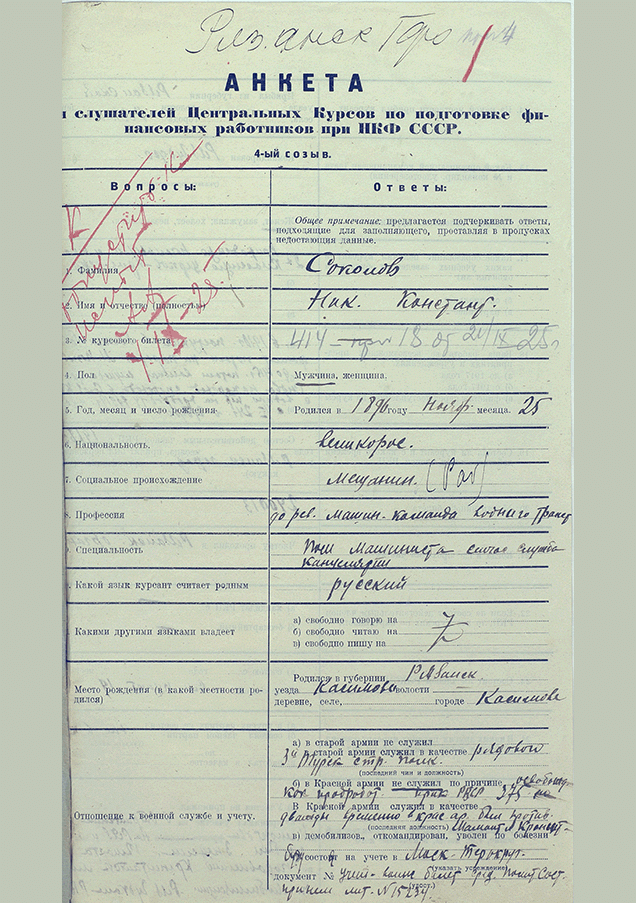 Рязанск Гфо 4
АНКЕТА
слушателей Центральных Курсов по подготовке фи-
нансовых работников при НКФ СССР.
4-ый созыв.
Вопросы: Ответы:
Общее примечание: предлагается подчеркивать ответы,
подходящие для заполняющего, проставляя в пропусках
недостающия данные.
1. Фамилия Соколов
2. Имя и отчество (полностью) Ник. Констант.
3. № курсового билета 414 18 от 24/IX 25 г
4. Пол Мужчина, женщина.
5. Год, месяц и число рождения Родился в 1896 году Нояб. месяца. 25
6. Национальность. великорос.
7. Социальное происхождение мещанин. (Раб)
8. Профессия до рев. машин. команда водного трансп
9. Специальность Пом машиниста сейчас служба
канцелярии
Какой язык курсант считает родным русский
а) свободно говорю на
Какими другими языками владеет б) свободно читаю на
в) свободно пишу на
Родился в губернии Рязанск.
Место рождения (в какой местности ро-
дился) уезда Касимов волости
деревне, селе, городе Касимове
а) в старой армии не служил
в старой армии служил в качестве рядового
3й стр. полк.
(последний чин и должность)
б) в Красной армии не служил по причине освобожд
приказ 375
В Красной армии служил в качестве
Отношение к военной службе и учету. дважды временно в крас ар. был против
(последняя должность) Мамонт и Кроншт
в) демобилизов., откомандирован, уволен по болезни
состою на учете в Моск.
(указать учреждение)
документ № Учет- воин билет
лит. № 15234.